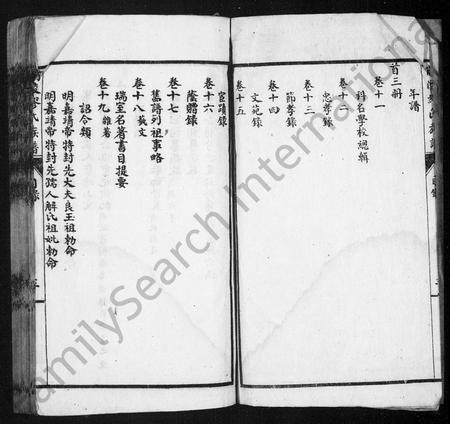 年譜
首三冊
卷十一
科名學校總輯
卷十二
忠孝錄
卷十三
節孝錄
卷十四
文苑錄
卷十五
宦蹟錄
卷十六
蔭贈錄
卷十七
舊譜列祖事略
卷十八 藝文
瑞室名著書目提要
卷十九 雜著
詔令類
明嘉靖帝特封先大夫良玉祖勅命
明嘉靖帝特封先孺人解氏祖妣勅命
氏族譜
目錄
FamilySearch International